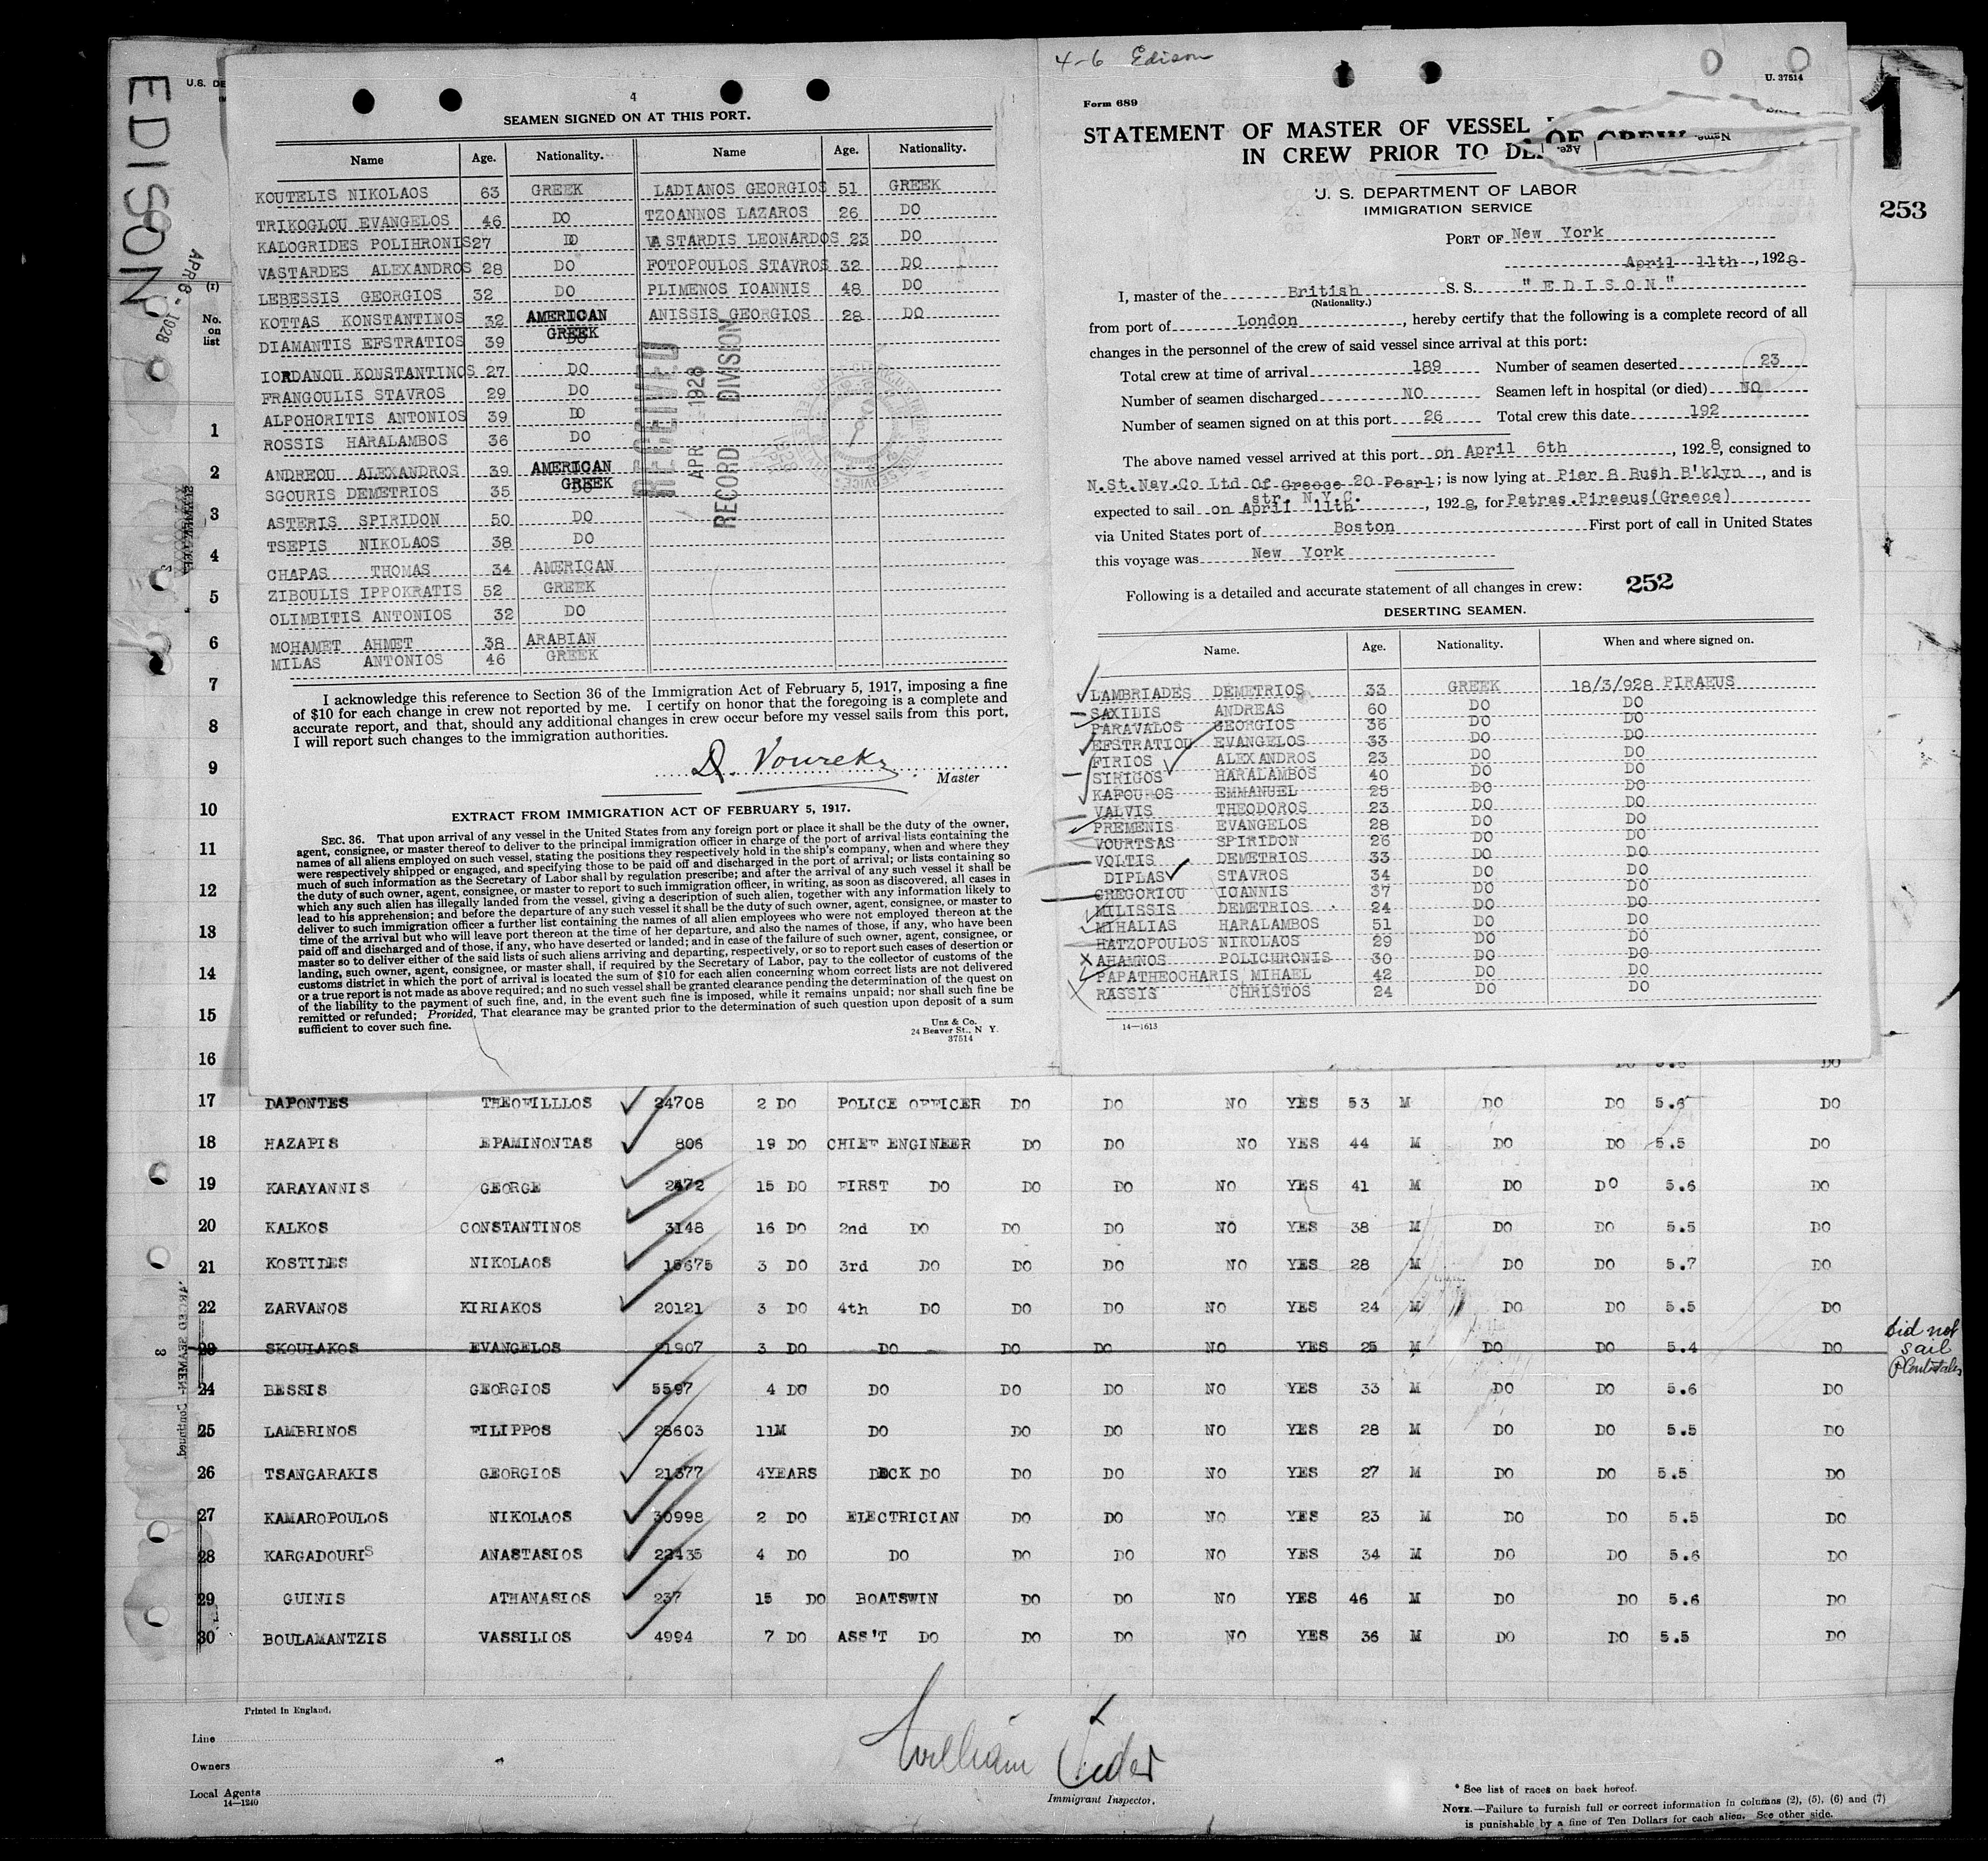 EDISON
EDISON
APR 8 - 1928
U.S. DE
(1)
No.
on
list
4
SEAMEN SIGNED ON AT THIS PORT.
Name Age. Nationality. Name Age. Nationality.
KOUTELIS NIKOLAOS 63 GREEK LADIANOS GEORGIOS 51 GREEK
TRIKOGLOU EVANGELOS 46 DO TZOANNOS LAZAROS 26 DO
KALOGRIDES POLIHRONIS 27 DO VASTARDIS LEONARDOS 23 DO
VASTARDES ALEXANDROS 28 DO FOTOPOULOS STAVROS 32 DO
LEBESSIS GEORGIOS 32 DO PLIMENOS IOANNIS 48 DO
KOTTAS KONSTANTINOS 32 AMERICAN ANISSIS GEORGIOS 28 DO
DIAMANTIS EFSTRATIOS 39 GREEK
IORDANOU KONSTANTINOS 27 DO
FRANGOULIS STAVROS 29 DO
ALPOHORITIS ANTONIOS 39 DO
ROSSIS HARALAMBOS 36 DO
ANDREOU ALEXANDROS 39 AMERICAN
SGOURIS DEMETRIOS 35 GREEK
ASTERIS SPIRIDON 50 DO
TSEPIS NIKOLAOS 38 DO
CHAPAS THOMAS 34 AMERICAN
ZIBOULIS IPPOKRATIS 52 GREEK
OLIMBITIS ANTONIOS 32 DO
MOHAMET AHMET 38 ARABIAN
MILAS ANTONIOS 46 GREEK
RECEIVED
APR 1928
RECORD DIVISION
I acknowledge this reference to Section 36 of the Immigration Act of February 5, 1917, imposing a fine
of $10 for each change in crew not reported by me. I certify on honor that the foregoing is a complete and
accurate report, and that, should any additional changes in crew occur before my vessel sails from this port,
I will report such changes to the immigration authorities.
Master
EXTRACT FROM IMMIGRATION ACT OF FEBRUARY 5, 1917.
SEC. 36. That upon arrival of any vessel in the United States from any foreign port or place it shall be the duty of the owner,
agent, consignee, or master thereof to deliver to the principal immigration officer in charge of the port of arrival lists containing the
names of all aliens employed on such vessel, stating the positions they respectively hold in the ship's company, when and where they
were respectively shipped or engaged, and specifying those to be paid off and discharged in the port of arrival; or lists containing so
much of such information as the Secretary of Labor shall by regulation prescribe; and after the arrival of any such vessel it shall be
the duty of such owner, agent, consignee, or master to report to such immigration officer, in writing, as soon as discovered, all cases in
which any such alien has illegally landed from the vessel, giving a description of such alien, together with any information likely to
lead to his apprehension; and before the departure of any such vessel it shall be the duty of such owner, agent, consignee, or master to
deliver to such immigration officer a further list containing the names of all alien employees who were not employed thereon at the
time of the arrival but who will leave port thereon at the time of her departure, and also the names of those, if any, who have been
paid off and discharged and of those, if any, who have deserted or landed; and in case of the failure of such owner, agent, consignee, or
master so to deliver either of the said lists of such aliens arriving and departing, respectively, or so to report such cases of desertion or
landing, such owner, agent, consignee, or master shall, if required by the Secretary of Labor, pay to the collector of customs of the
customs district in which the port of arrival is located the sum of $10 for each alien concerning whom correct lists are not delivered
or a true report is not made as above required; and no such vessel shall be granted clearance pending the determination of the quest on
of the liability to the payment of such fine, and, in the event such fine is imposed, while it remains unpaid; nor shall such fine be
remitted or refunded; Provided, That clearance may be granted prior to the determination of such question upon deposit of a sum
sufficient to cover such fine.
Unz & Co.
24 Beaver St., N Y.
37514
4-6 Edison
U. 37514
Form 689
STATEMENT OF MASTER OF VESSEL
OF CREW
IN CREW PRIOR TO DE
Age.
Name
U. S. DEPARTMENT OF LABOR
IMMIGRATION SERVICE
PORT OF New York
April 11th, 1928
I, master of the British S. S. "EDISON"
(Nationality.)
from port of London, hereby certify that the following is a complete record of all
changes in the personnel of the crew of said vessel since arrival at this port:
Total crew at time of arrival 189 Number of seamen deserted 23
Number of seamen discharged NO Seamen left in hospital (or died) NO
Number of seamen signed on at this port 26 Total crew this date 192
The above named vessel arrived at this port on April 6th, 1928, consigned to
N.St.Nav.Co Ltd Of Greece 20 Pearl; is now lying at Pier 8 Bush B'klyn, and is
str. N.Y.C.
expected to sail on April 11th, 1928, for Patras.Piraeus(Greece)
via United States port of Boston First port of call in United States
this voyage was New York
Following is a detailed and accurate statement of all changes in crew: 252
DESERTING SEAMEN.
Name. Age. Nationality. When and where signed on.
LAMBRIADES DEMETRIOS 33 GREEK 18/3/928 PIRAEUS
SAXILIS ANDREAS 60 DO DO
PARAVALOS GEORGIOS 36 DO DO
EFSTRATIOU EVANGELOS 33 DO DO
FIRIOS ALEXANDROS 23 DO DO
SIRIGOS HARALAMBOS 40 DO DO
KAPOUROS EMMANUEL 25 DO DO
VALVIS THEODOROS 23 DO DO
PREMENIS EVANGELOS 28 DO DO
VOURTSAS SPIRIDON 26 DO DO
VOLTIS DEMETRIOS 33 DO DO
DIPLAS STAVROS 34 DO DO
GREGORIOU IOANNIS 37 DO DO
MILISSIS DEMETRIOS 24 DO DO
MIHALIAS HARALAMBOS 51 DO DO
HATZOPOULOS NIKOLAOS 29 DO DO
AHAMNOS POLICHRONIS 30 DO DO
PAPATHEOCHARIS MIHAEL 42 DO DO
RASSIS CHRISTOS 24 DO DO
14—1613
1
253
1
2
3
4
5
6
7
8
9
10
11
12
13
14
15
16 DO
17 DAPONTES THEOFILLLOS 24708 2 DO POLICE OFFICER DO DO NO YES 53 M DO DO 5.6 DO
18 HAZAPIS EPAMINONTAS 806 19 DO CHIEF ENGINEER DO DO NO YES 44 M DO DO 5.5 DO
19 KARAYANNIS GEORGE 2472 15 DO FIRST DO DO DO NO YES 41 M DO DO 5.6 DO
20 KALKOS CONSTANTINOS 3148 16 DO 2nd DO DO DO NO YES 38 M DO DO 5.5 DO
21 KOSTIDES NIKOLAOS 15675 3 DO 3rd DO DO DO NO YES 28 M DO DO 5.7 DO
22 ZARVANOS KIRIAKOS 20121 3 DO 4th DO DO DO NO YES 24 M DO DO 5.5 DO
23 SKOULAKOS EVANGELOS 21907 3 DO DO DO DO NO YES 25 M DO DO 5.4 DO Did not sail
24 BESSIS GEORGIOS 5597 4 DO DO DO DO NO YES 33 M DO DO 5.6 DO
25 LAMBRINOS FILIPPOS 28603 11M DO DO DO NO YES 28 M DO DO 5.5 DO
26 TSANGARAKIS GEORGIOS 21377 4YEARS DECK DO DO DO NO YES 27 M DO DO 5.5 DO
27 KAMAROPOULOS NIKOLAOS 30998 2 DO ELECTRICIAN DO DO NO YES 23 M DO DO 5.5 DO
28 KARGADOURIS ANASTASIOS 22435 4 DO DO DO DO NO YES 34 M DO DO 5.6 DO
29 GUINIS ATHANASIOS 237 15 DO BOATSWIN DO DO NO YES 46 M DO DO 5.6 DO
30 BOULAMANTZIS VASSILIOS 4994 7 DO ASS'T DO DO DO NO YES 36 M DO DO 5.5 DO
Printed in England.
Line
Owners
Local Agents
14—1240
William
Immigrant Inspector.
* See list of races on back hereof.
NOTE.—Failure to furnish full or correct information in columns (2), (5), (6) and (7)
is punishable by a fine of Ten Dollars for each alien. See other side.